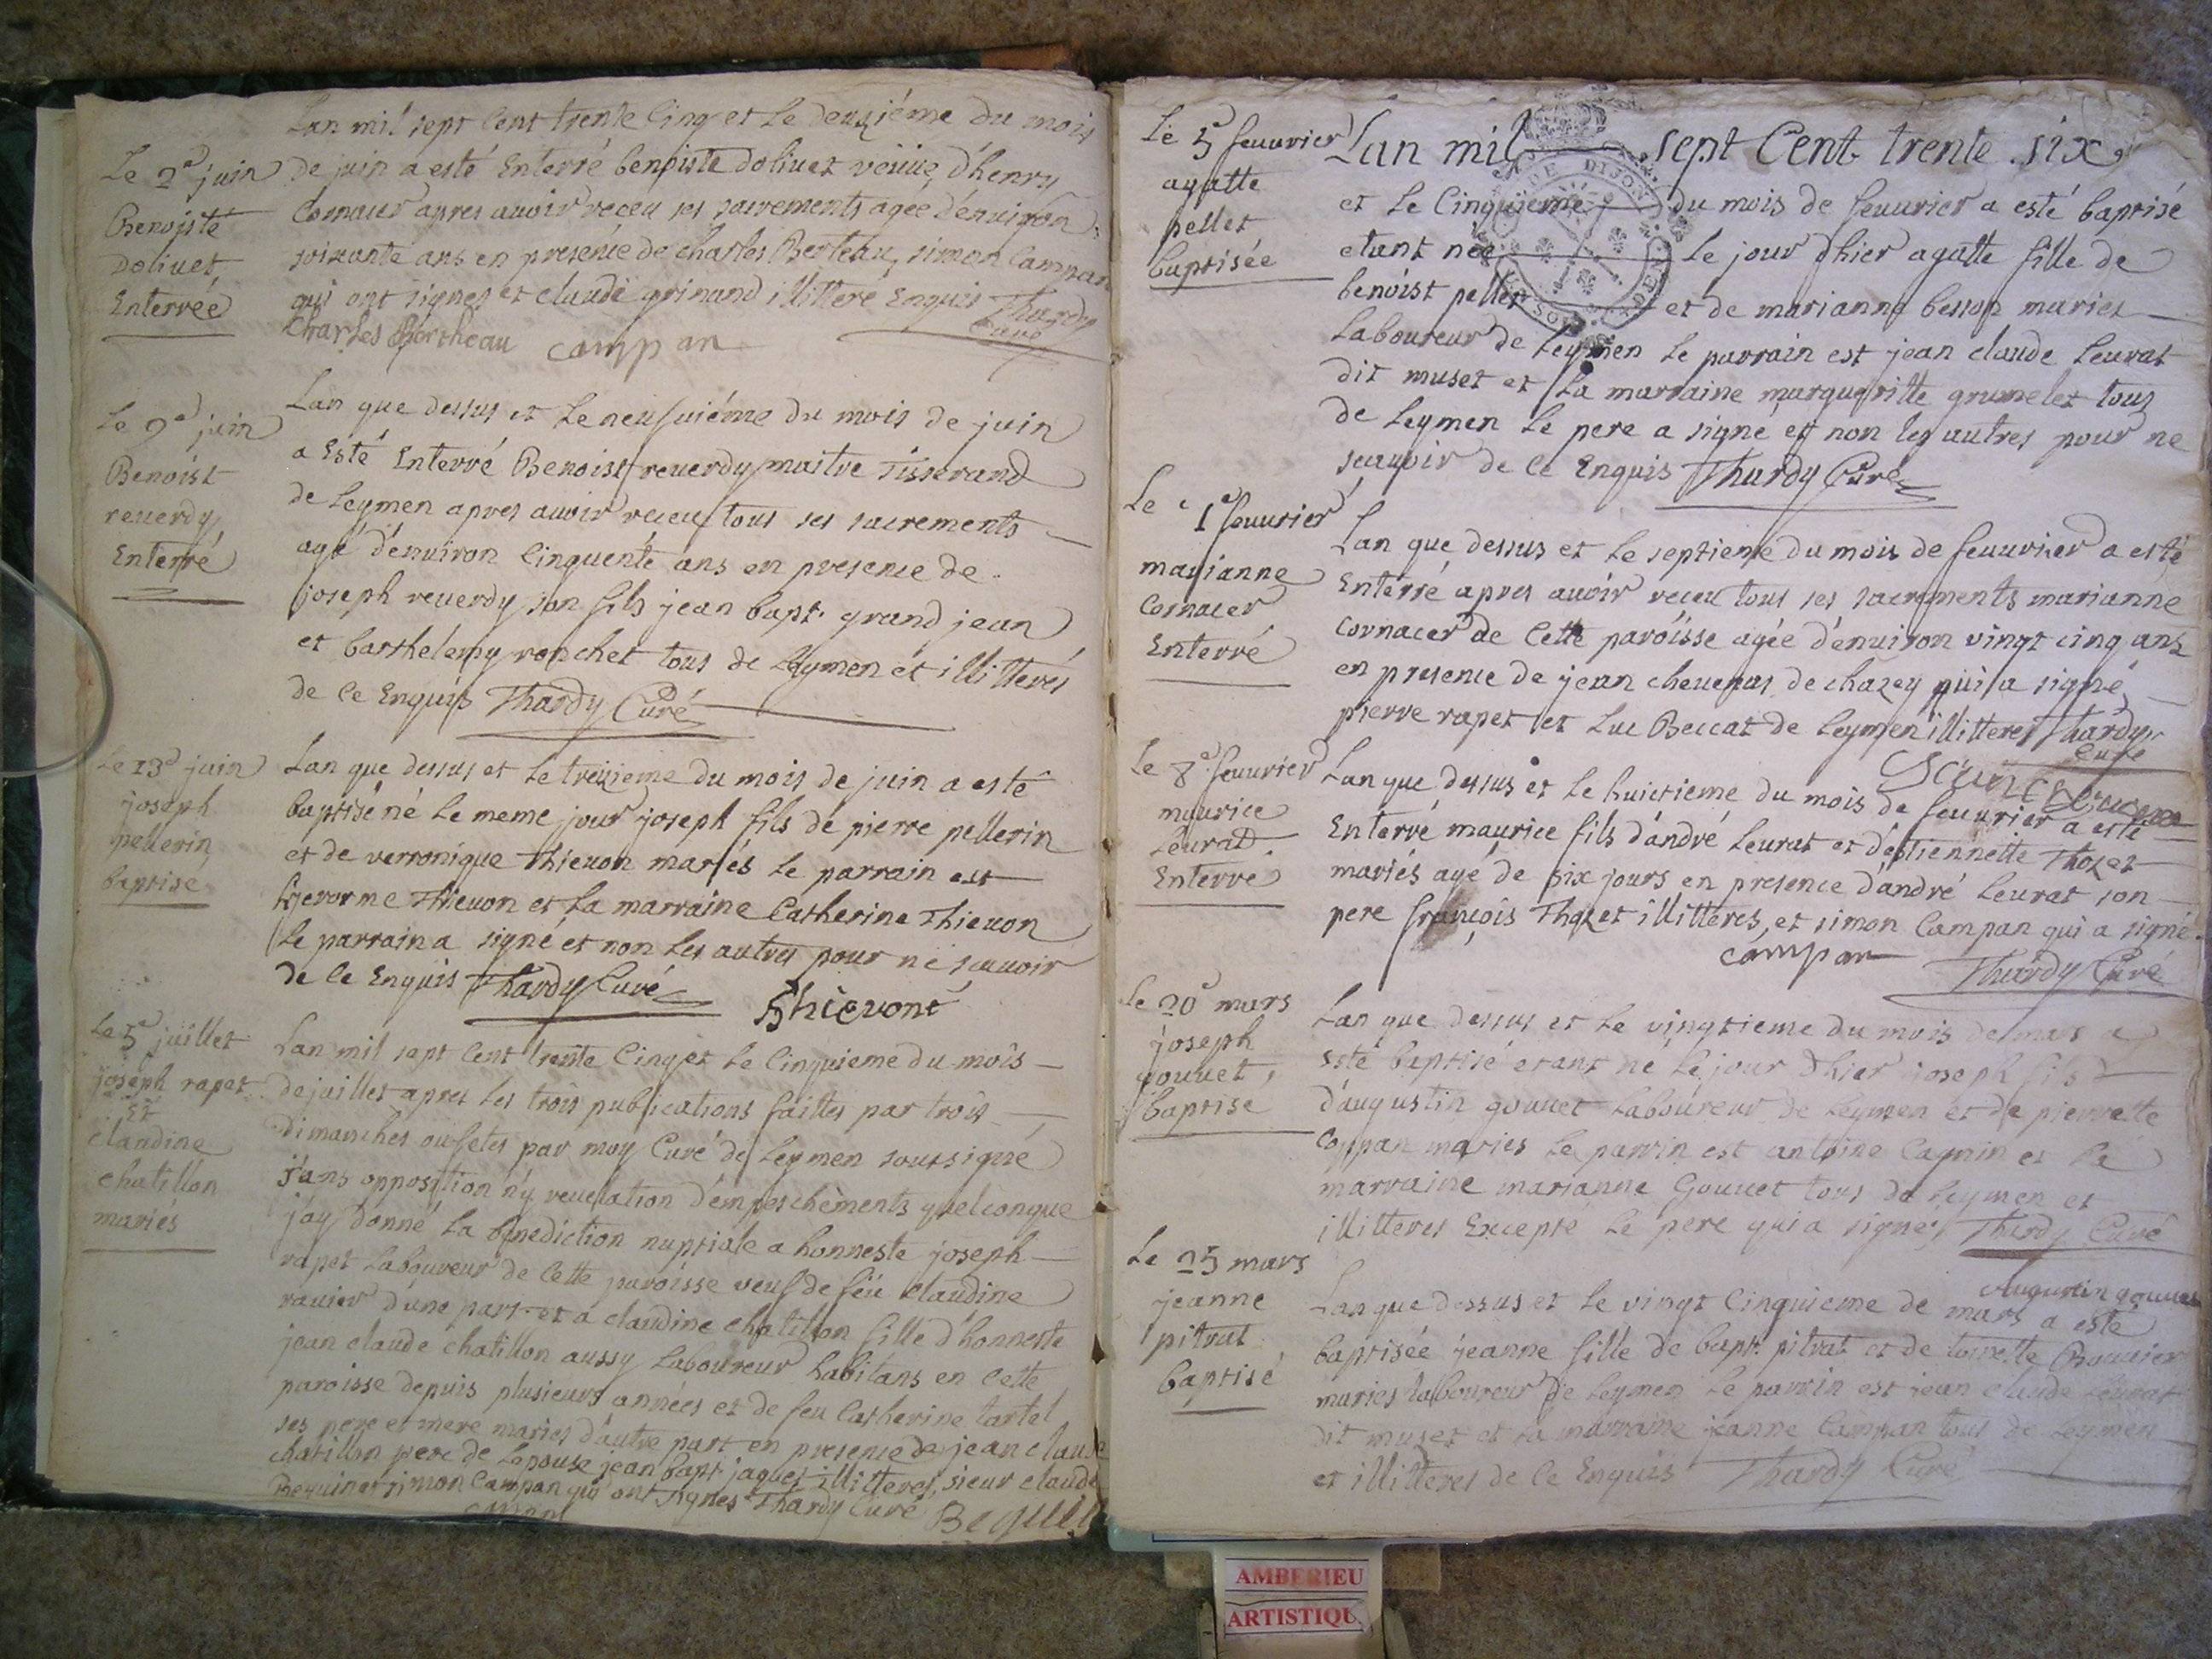 Lan mil sept Cent trente Cinq et Le deuxiéme du mois
Le 2e juin
Benoiste
Doliuet
Enterréé
de juin a esté Enterré benoiste doliuet veüue d'henry
Cornacer apres auoir receu ses sacrements agée d'enuiron
soixante ans en presence de charles Berteau, simon Campan
qui ont signes et claude grinand illitere Enquis Thardy
Curé
Charles Bertheau campan
Le 9e juin
Benoist
reuerdy
Enterré
Lan que dessus et Le neufuiéme du mois de juin
a Esté Enterré Benoist reuerdy maitre Tisserand
de Leymen apres auoir receu tous ses sacrements
agé d'enuiron Cinquente ans en presence de
joseph reuerdy son fils jean bapt. grand jean
et barthelemy ronchet tous de Leymen et illitterés
de Ce Enquis Thardy Curé
Le 13e juin
joseph
pellerin
baptise
Lan que dessus et Le treizieme du mois de juin a esté
baptisé né Le meme jour joseph fils de pierre pellerin
et de verronique Thieuon mariés Le parrain est
hjerorme Thieuon et La marraine Catherine Thieuon
Le parrain a signé et non Les autres pour ne scauoir
de Ce Enquis Thardy Curé Thievont
Le 5e juillet
joseph rapet
Et
claudine
chatillon
mariés
Lan mil sept Cent trente Cinq et Le Cinquieme du mois
de juillet apres Les trois publications faittes par trois
Dimanches ou fetes par moy Curé de Leymen soussigné
sans opposition n'y reuelation d'empeschements quelconque
j'ay donné La benediction nuptiale a honneste joseph
rapet Laboureur de Cette paroisse veuf de feu Claudine
rauier d'une part et a claudine chatillon fille d'honneste
jean claude chatillon aussy Laboureur habitans en Cette
paroisse depuis plusieurs années et de feu Catherine tartel
ses pere et mere mariés d'autre part en presence de jean claude
chatillon pere de Lepouse jean bapt. jaques illitteres, sieur claude
Beguin et simon Campan qui ont signes Thardy Curé Beguin
Le 5e feuurier
agatte
pellet
baptisée
Lan mil sept Cent trente six
et Le Cinquieme du mois de feuurier a esté baptisé
etant née Le jour d'hier agatte fille de
benoist pellet et de marianne besson mariez
Laboureur de Leymen Le parrain est jean claude Leurat
dit muset et La marraine margueritte grumelet tous
de Leymen Le pere a signé et non les autres pour ne
scauoir de Ce Enquis Thardy Curé
Le feuurier
marianne
Cornacer
Enterré
Lan que dessus et Le septieme du mois de feuurier a esté
Enterré apres auoir receu tous ses sacrements marianne
Cornacer de Cette paroisse agée d'enuiron vingt cinq ans
en presence de jean cheuenas de chazey qui a signé
pierre rapet et Luc Beccat de Leymen illitteres Thardy
Curé
Le 8e feuurier
maurice
Leurat
Enterré
Lan que dessus et Le huictieme du mois de feuurier a esté
Enterré maurice fils d'andré Leurat et d'estiennette Thozet
mariés agé de six jours en presence d'andré Leurat son
pere françois Thozet illitteres, et simon Campan qui a signé
campan
Thardy Curé
Le 20e mars
joseph
gouuet
baptise
Lan que dessus et Le vingtieme du mois de mars a
esté baptisé etant né Le jour d'hier joseph fils
d'augustin gouuet Laboureur de Leymen et de pierrette
Coppan mariés Le parrin est antoine Cagnin et La
marraine marianne Gouuet tous de Leymen et
illitteres Excepté Le pere qui a signé Thardy Curé
Augustin gouuet
Le 25 mars
jeanne
pitrat
baptisé
Lan que dessus et Le vingt Cinquieme de mars a esté
baptisée jeanne fille de bapt. pitrat et de
mariés Laboureur de Leymen Le parrin est jean claude Leurat
dit muset et La marraine jeanne Campan tous de Leymen
et illitteres de Ce Enquis Thardy Curé
AMBERIEU
ARTISTIQU